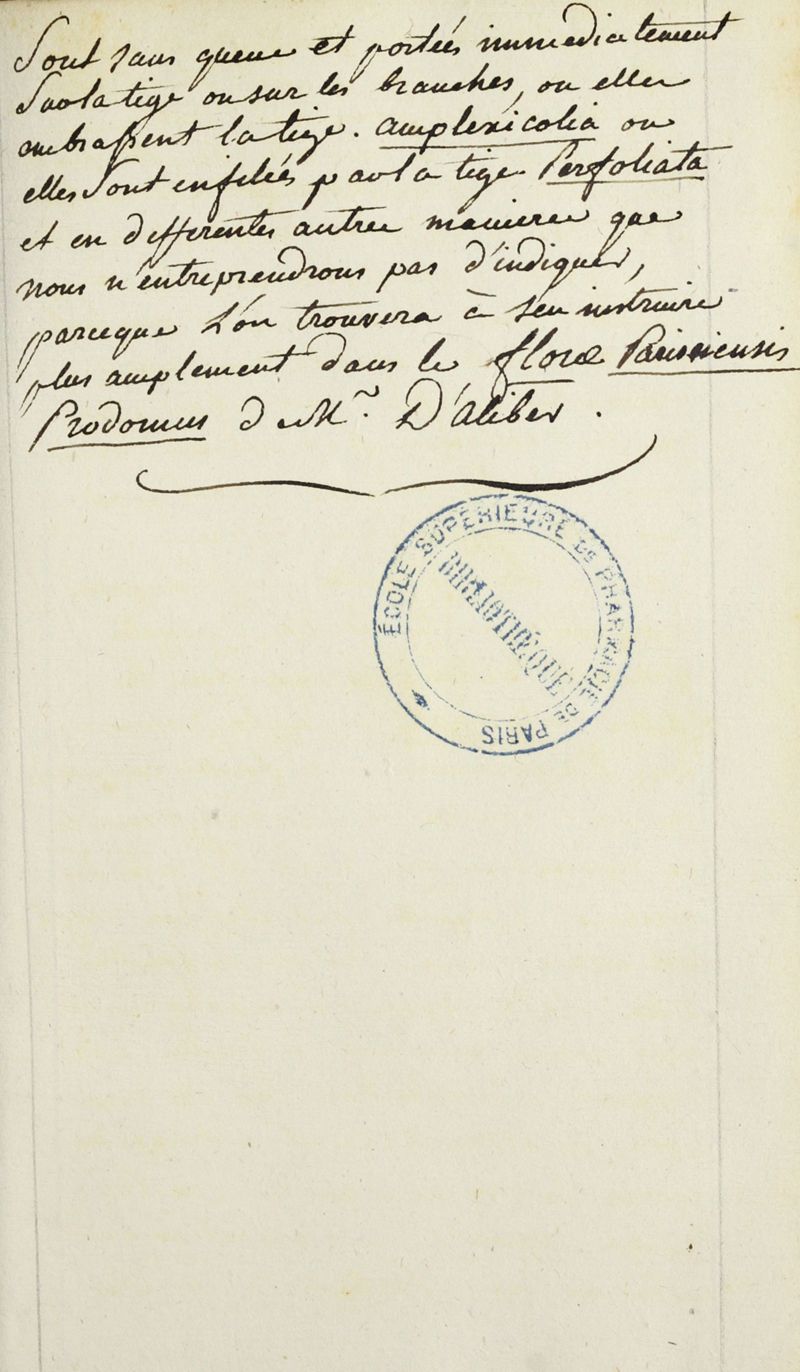 Sont sans queue et portées immediatement
Sur la tige ou sur les branches, ou elles
embrassent la tige. amplexicolia ou
elles Sont enfilées par la tige. Perfoliata
et en differentes autres manieres que
nous n'entreprendrons pas d'indiquer,
parceque L'on trouvera à s'en instruire
plus amplement dans le floræ Parisiensis
Prodomus de Mr. D'aliber.
ÉCOLE SUPÉRIEURE DE PHARMACIE DE PARIS
BIBLIOTHÈQUE